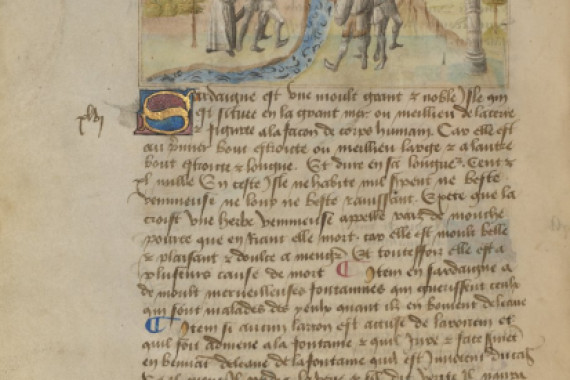 Sardaigne est vne moult grant & noble Isle qui
est situee en la grant mer ou meillieu de la terre
Figuree a la facon de corps humain. Car elle est
au premier bout estroicte ou meillieu large & a lautre
bout estroicte & longue. Et dure en sa longueur Cent &
xl mille En ceste Isle ne habite nul serpent ne beste
venimeuse ne loup ne beste rauissant. Excepte que la
croist vne herbe venimeuse appelle
pource que en riant elle mort. car elle est moult belle
& plaisant & doulce a menger Et toutesfois elle est a
plusieurs cause de mort ¶ Item en sardaigne a
de moult merueilleuses fontaines qui guerissent ceulx
qui sont malades des yeulx quant ilz en boiuent de leaue
¶ Item se aucun larron est accuse de larrecin et
quil soit admene a la fontaine & quil Jure & face serment
en beuuant de leaue de la fontaine & quil est Innocent du cas